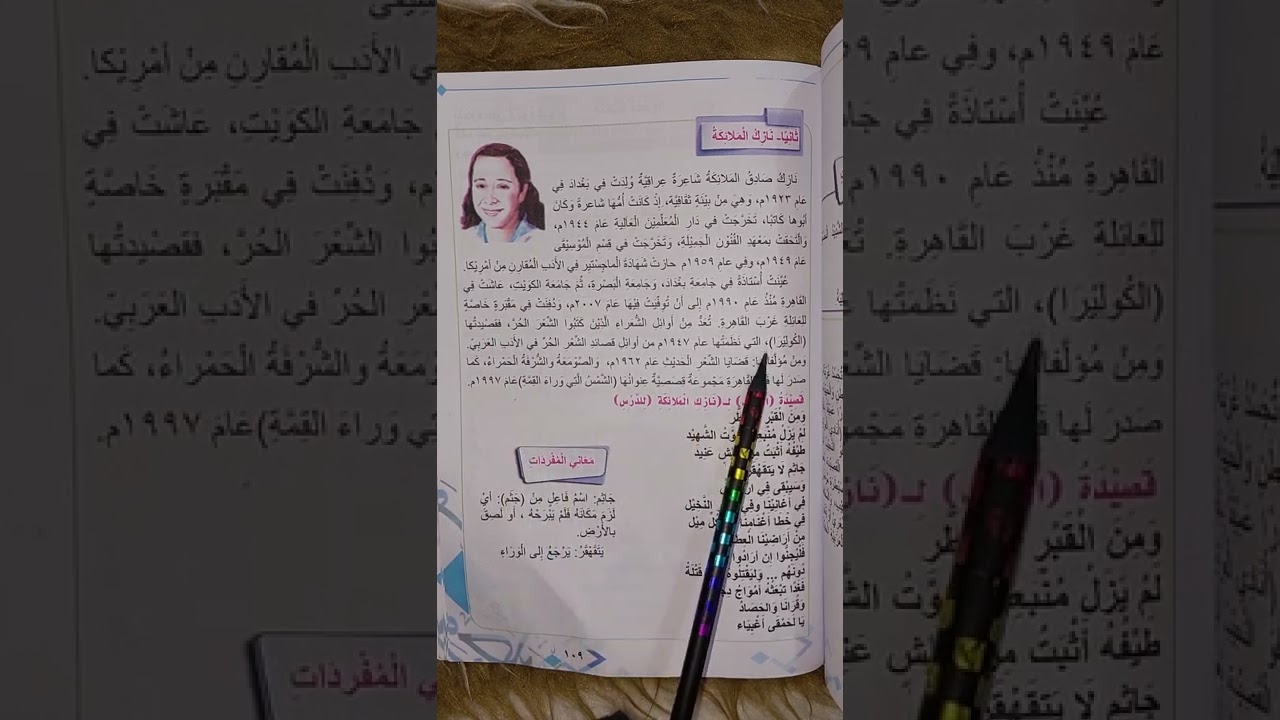 ثانيًا- نَازِكُ الْمَلَائِكَةُ
نَازِكُ صَادِقُ المَلَائِكَةُ شَاعِرَةٌ عِرَاقِيَّةٌ وُلِدَتْ فِي بَغْدَادَ فِي
عَام ١٩٢٣م، وهيَ مِنْ بِيْئَةٍ ثَقَافِيَّة، إذْ كَانَتْ أُمُّهَا شَاعِرةً وَكَانَ
أَبُوهَا كَاتِبًا، تَخَرَّجَتْ في دَارِ الْمُعَلِّمِيْنَ الْعَالِيَةِ عَامَ ١٩٤٤م،
وَالْتَحَقَتْ بِمَعْهَدِ الْفُنُوْنِ الْجَمِيْلَةِ، وتَخَرَّجَتْ في قِسْمِ الْمُوْسِيْقَى
عَامَ ١٩٤٩م، وفِي عام ١٩٥٩م حازتْ شَهَادَةَ الْمَاجِسْتير في الأَدَبِ الْمُقَارِنِ مِنْ أمْرِيْكا.
عُيِّنَتْ أُسْتَاذَةً في جَامعةِ بَغْدَادَ، وَجَامعَةِ الْبَصْرَةِ، ثُمَّ جَامعَةِ الكوَيْتِ، عَاشَتْ في
القاهرةِ مُنْذُ عَام ١٩٩٠م إلى أنْ تُوفِّيَتْ فِيْهَا عَامَ ٢٠٠٧م، وَدُفِنَتْ في مَقْبَرةٍ خَاصَّةٍ
لِلعَائلةِ غَرْبَ القَاهرةِ. تُعَدُّ مِنْ أَوائلِ الشُّعراءِ الَّذِيْنَ كَتَبُوا الشِّعْرَ الحُرَّ، فقصيدتُها
(الْكُولِيْرَا)، التي نَظَمَتْها عام ١٩٤٧م من أوائل قصائدِ الشِّعْرِ الحُرِّ في الأدَبِ العَرَبيّ.
وَمِنْ قَضَايا الشِّعْرِ الْحَدِيْثِ عَام ١٩٦٢م، والصَّوْمَعَةُ وَالشُّرْفَةُ الْحَمْرَاءُ، كَمَا
صَدَرَ لَها القَاهرةِ مَجْمُوعَةٌ قَصصيَّةٌ عِنوانُها (الشَّمْسُ الَّتِي وَرَاءَ القِمَّةِ)عَامَ ١٩٩٧م.
قَصِيْدَةُ لـ(نَازِك الْمَلَائِكَةِ (لِلدَّرْسِ)
وَمِنَ الْقَبْرِ
لَمْ يَزَلْ الشَّهِيْد
طَيْفُهُ أَثْبَتُ عَنِيد
جَاثِم لَا يَتَقَهْقَر
وَسَيَبْقَى فِي
في أغَانِيْنا وَفِي النَّخِيْل
في خُطا أغْنَامِنا مِيْل
مِنْ أراضِيْنا
فَلْيُجَنُّوا إن أرَادُوا
دُونَهُم ... وَلْيَقْتلوهُ قتْلَة
فَغَدًا تَبْعَثُهُ أمْوَاجُ
وَقُرَانَا وَالحَصَادُ
يَا لَحَمْقَى أَغْبِيَاء
مَعَاني الْمُفْرَدَات
جَاثِم: اسْمُ فَاعِلٍ مِنْ (جَثَمَ): أيْ
لَزِمَ مَكَانَهُ فَلَمْ يَبْرَحْهُ ، أو لَصِقَ
بالأرْضِ.
يَتَقَهْقَرُ: يَرْجَعُ إلى الْوَرَاءِ
١٠٩